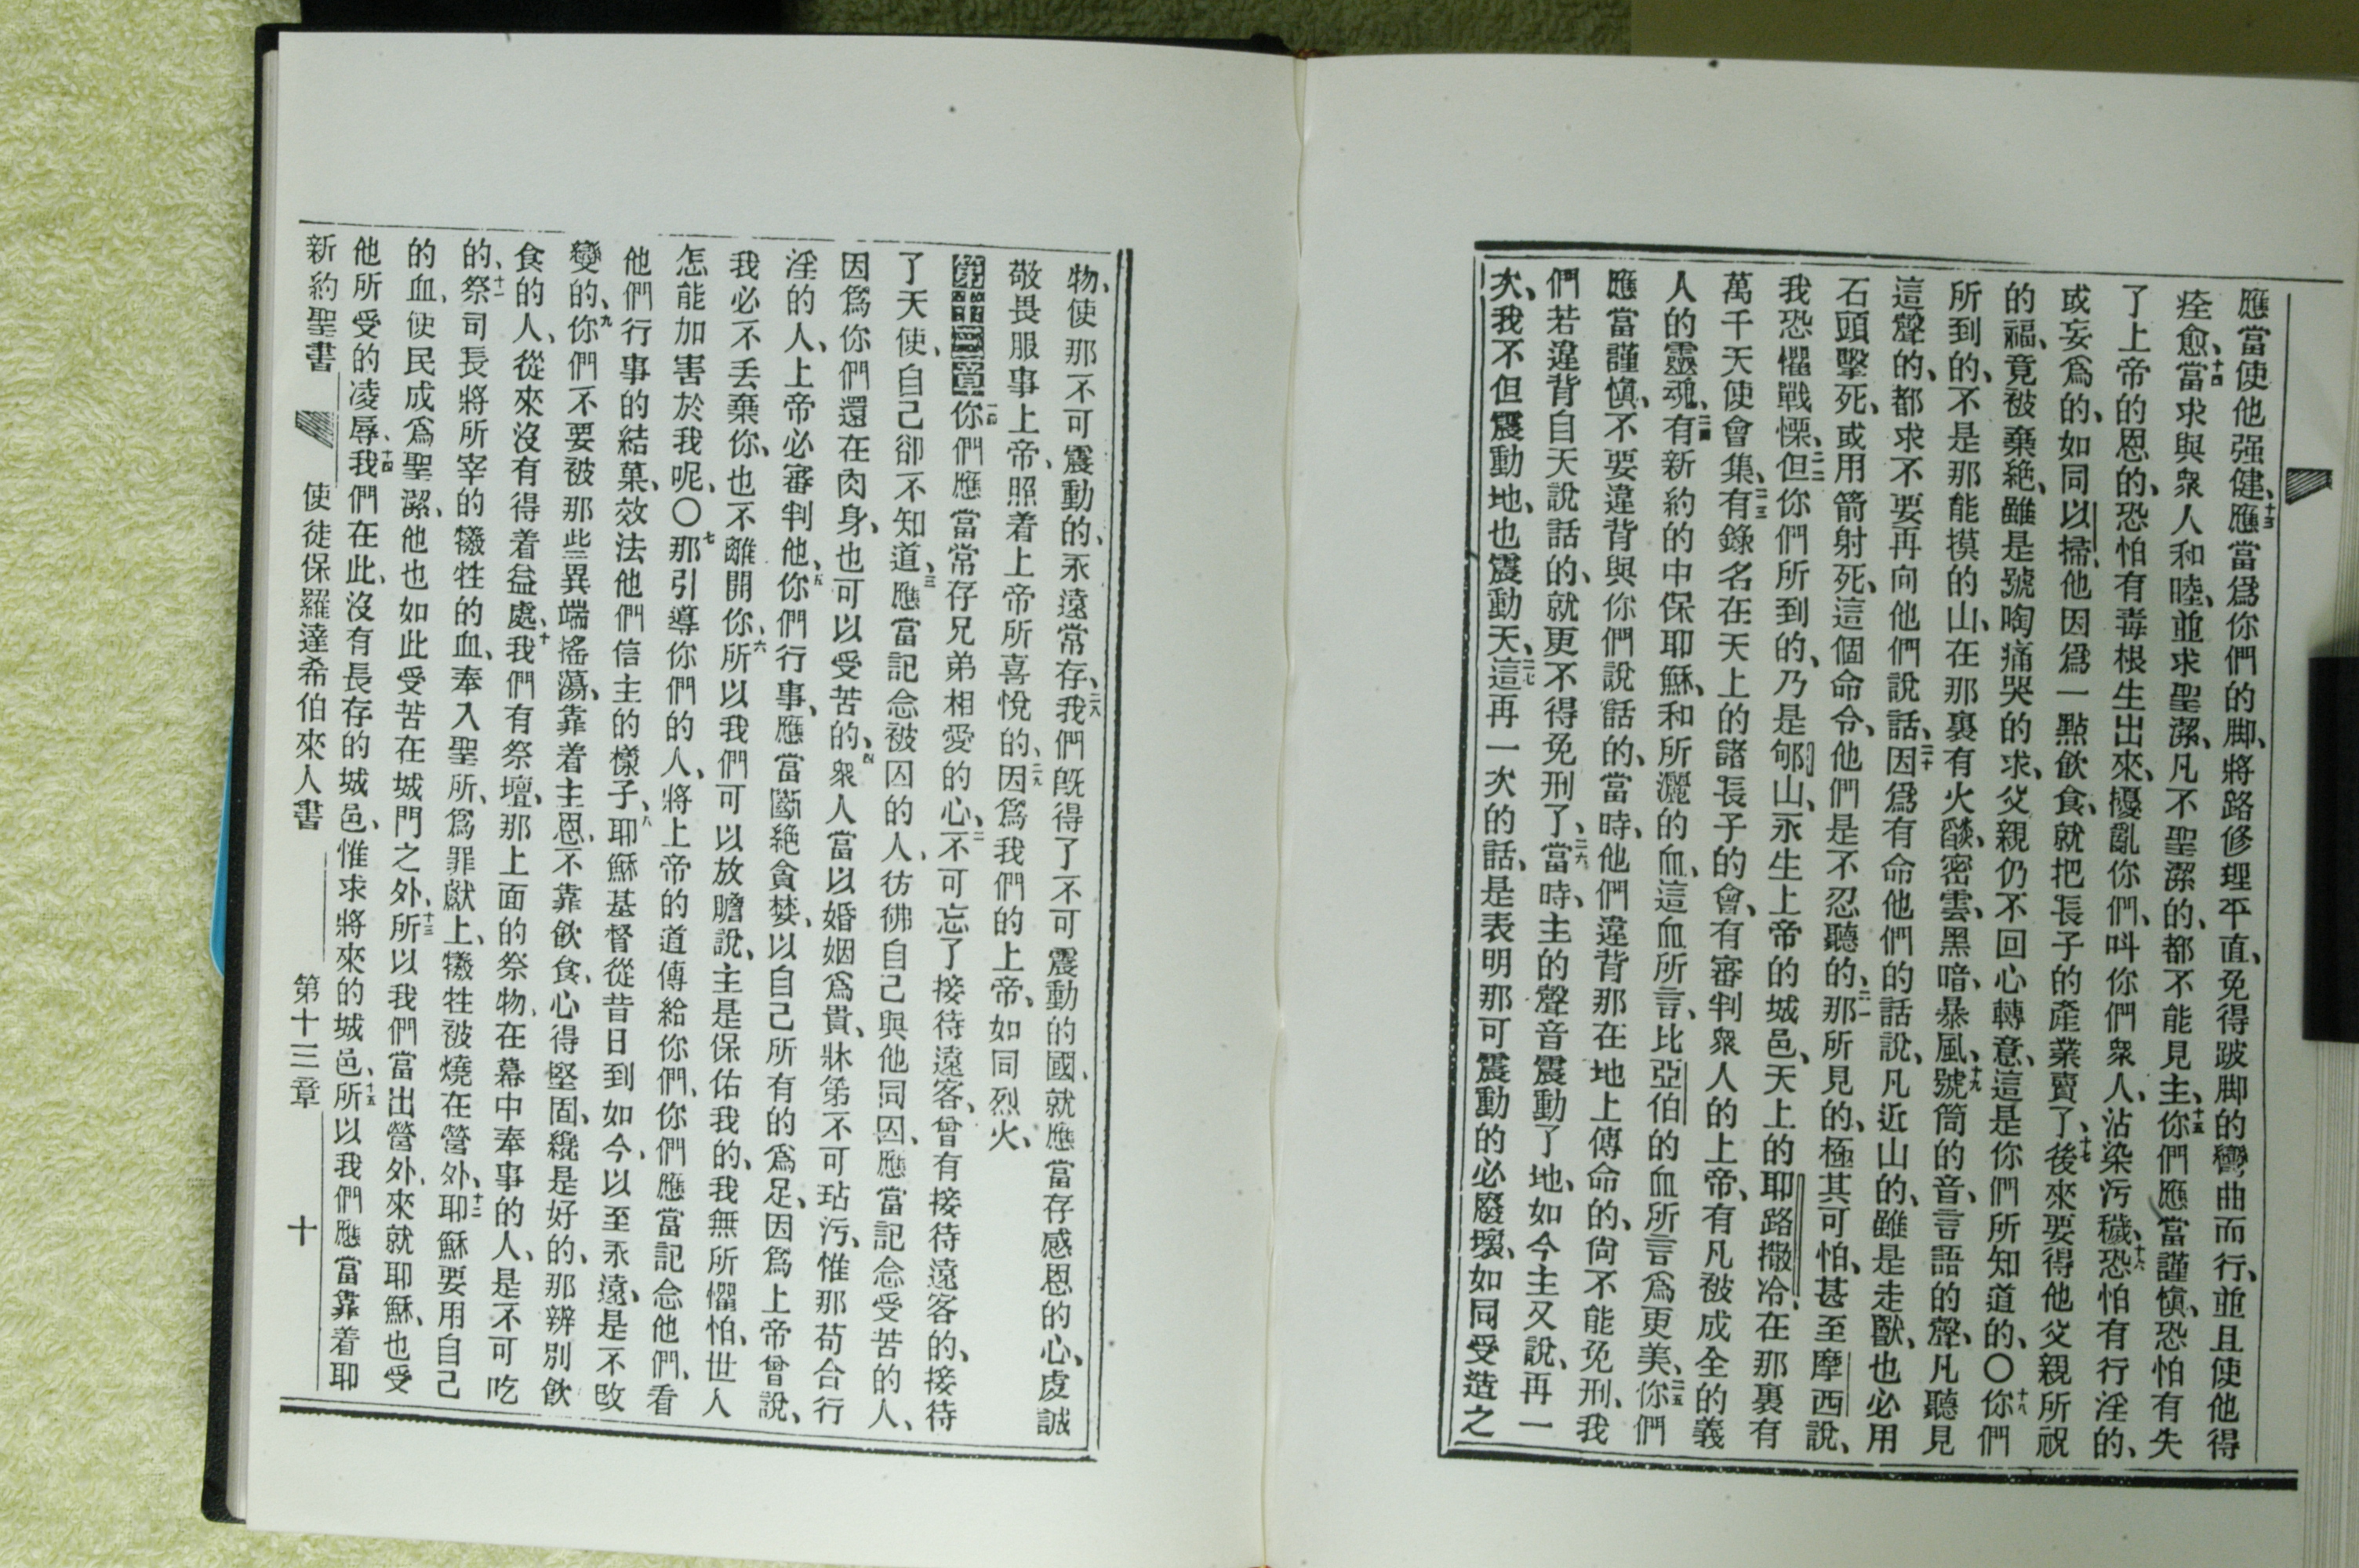 應當使他强健、十三應當爲你們的脚、將路修理平直、免得跛脚的彎曲而行、並且使他得
痊愈、十四當求與衆人和睦、並求聖潔、凡不聖潔的、都不能見主、十五你們應當謹愼、恐怕有失
了上帝的恩的、恐怕有毒根生出來、擾亂你們、叫你們衆人、沾染污穢、十六恐怕有行淫的、
或妄爲的、如同以掃、他因爲一點飮食、就把長子的產業賣了、十七後來要得他父親所祝
的福、竟被棄絶、雖是號啕痛哭的求、父親仍不回心轉意、這是你們所知道的、〇十八你們
所到的、不是那能摸的山、在那裏有火燄、密雲、黑暗、暴風、十九號筒的音、言語的聲、凡聽見
這聲的、都求不要再向他們說話、二十因爲有命他們的話說、凡近山的、雖是走獸、也必用
石頭擊死、或用箭射死、這個命令、他們是不忍聽的、二一那所見的、極其可怕、甚至摩西說、
我恐懼戰慄、二二但你們所到的、乃是郇山、永生上帝的城邑、天上的耶路撒冷、在那裏有
萬千天使會集、二三有錄名在天上的諸長子的會、有審判衆人的上帝、有凡被成全的義
人的靈魂、二四有新約的中保耶穌、和所灑的血、這血所言、比亞伯的血所言爲更美、二五你們
應當謹愼、不要違背與你們說話的、當時、他們違背那在地上傳命的、尙不能免刑、我
們若違背自天說話的、就更不得免刑了、二六當時、主的聲音震動了地、如今主又說、再一
次、我不但震動地、也震動天、二七這再一次的話、是表明那可震動的必廢壞、如同受造之
物、使那不可震動的、永遠常存、二八我們旣得了不可震動的國、就應當存感恩的心、虔誠
敬畏服事上帝、照着上帝所喜悅的、二九因爲我們的上帝、如同烈火、
第十三章一你們應當常存兄弟相愛的心、二不可忘了接待遠客、曾有接待遠客的、接待
了天使、自己卻不知道、三應當記念被囚的人、彷彿自己與他同囚、應當記念受苦的人、
因爲你們還在肉身、也可以受苦的、四衆人當以婚姻爲貴、牀笫不可玷污、惟那苟合行
淫的人、上帝必審判他、五你們行事、應當斷絶貪婪、以自己所有的爲足、因爲上帝曾說、
我必不丟棄你、也不離開你、六所以我們可以放膽說、主是保佑我的、我無所懼怕、世人
怎能加害於我呢、〇七那引導你們的人、將上帝的道傳給你們、你們應當記念他們、看
他們行事的結菓、效法他們信主的樣子、八耶穌基督從昔日到如今、以至永遠、是不改
變的、九你們不要被那些異端搖蕩、靠着主恩、不靠飮食、心得堅固、纔是好的、那辨別飮
食的人、從來沒有得着益處、十我們有祭壇、那上面的祭物、在幕中奉事的人、是不可吃
的、十一祭司長將所宰的犧牲的血、奉入聖所、爲罪獻上、犧牲被燒在營外、十二耶穌要用自己
的血、使民成爲聖潔、他也如此受苦在城門之外、十三所以我們當出營外、來就耶穌、也受
他所受的凌辱、十四我們在此、沒有長存的城邑、惟求將來的城邑、十五所以我們應當靠着耶
新約聖書 使徒保羅達希伯來人書 第十三章 十